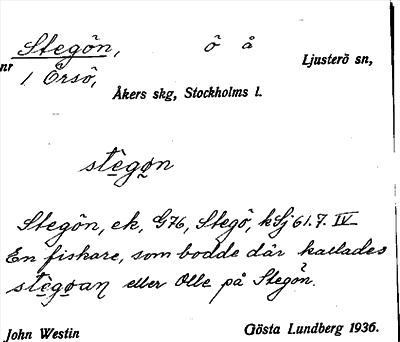 Stegön, ö å Ljusterö sn,
nr 1 Örsö,
Åkers skg, Stockholms l.
stègøn
Stegön, ek, G76, Stegö, kSj 61.7. IV
En fiskare, som bodde där kallades
stègøan eller Olle på Stegön.
John Westin Gösta Lundberg 1936.